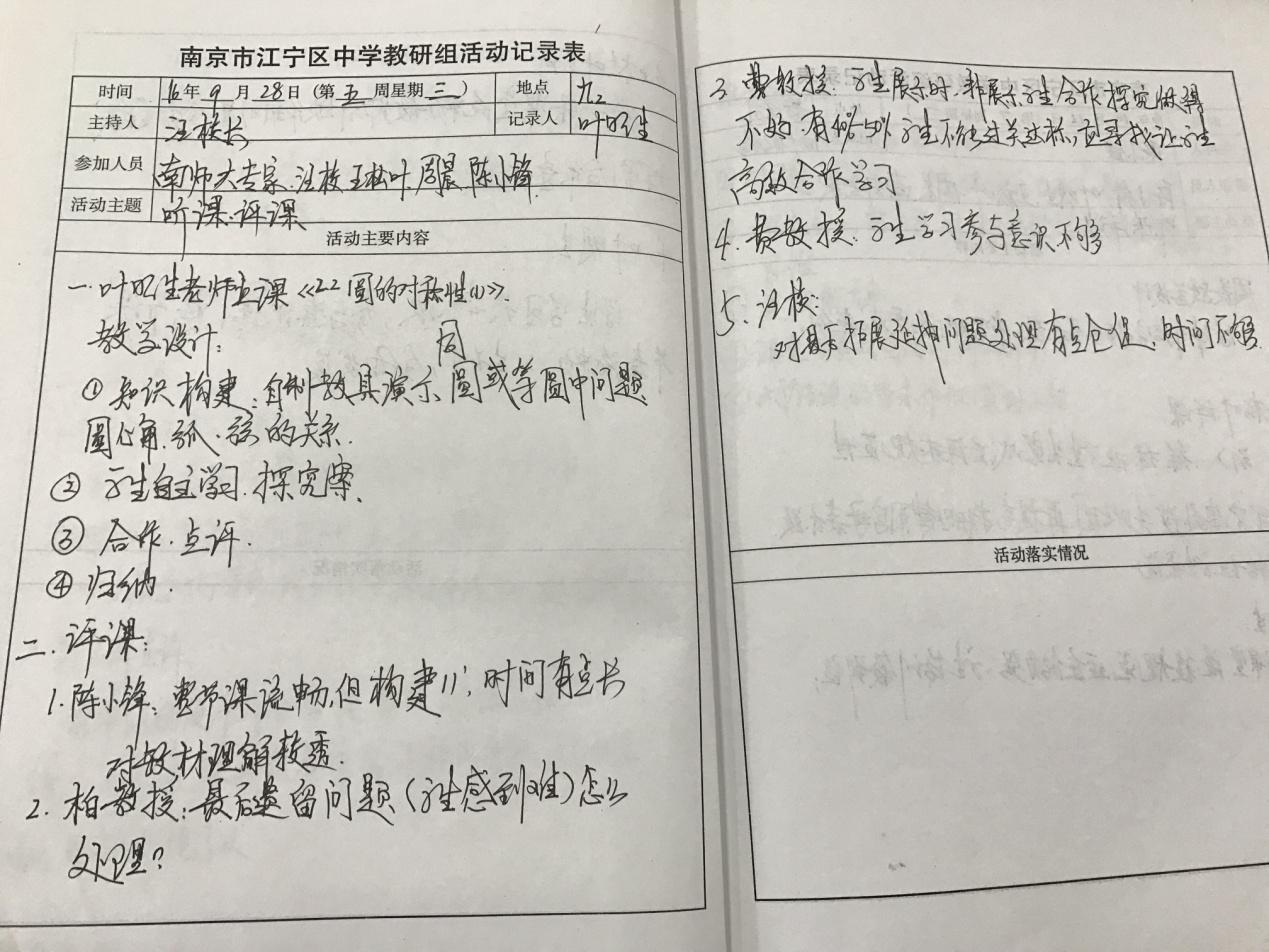 南京市江宁区中学教研组活动记录表
时间 16年 9 月 28日 (第 五 周星期 三 ) 地点 九2
主持人 汪校长 记录人 叶旺生
参加人员 南师大专家、汪校、王松叶、周晨、陈小锋
活动主题 听课、评课
活动主要内容
一、叶旺生老师上课《2.2圆的对称性(1)》.
教学设计:
同
① 知识构建:自制教具演示、圆或等圆中问题
圆心角、弧、弦的关系.
② 学生自主学习、探究案、
③ 合作、点评.
④ 归纳.
二、评课:
1.陈小锋:整节课流畅,但构建11′,时间有点长
对教材理解较透.
2.柏教授:最后遗留问题(学生感到难)怎么
处理?
3 费教授:学生展示时,非展示学生合作探究做得
不好,有 学生不能过关达标,应寻找让学生
高效合作学习
4.费教授:学生学习参与意识不够
5.汪校:
对最后拓展延伸问题处理有点仓促,时间不够
活动落实情况